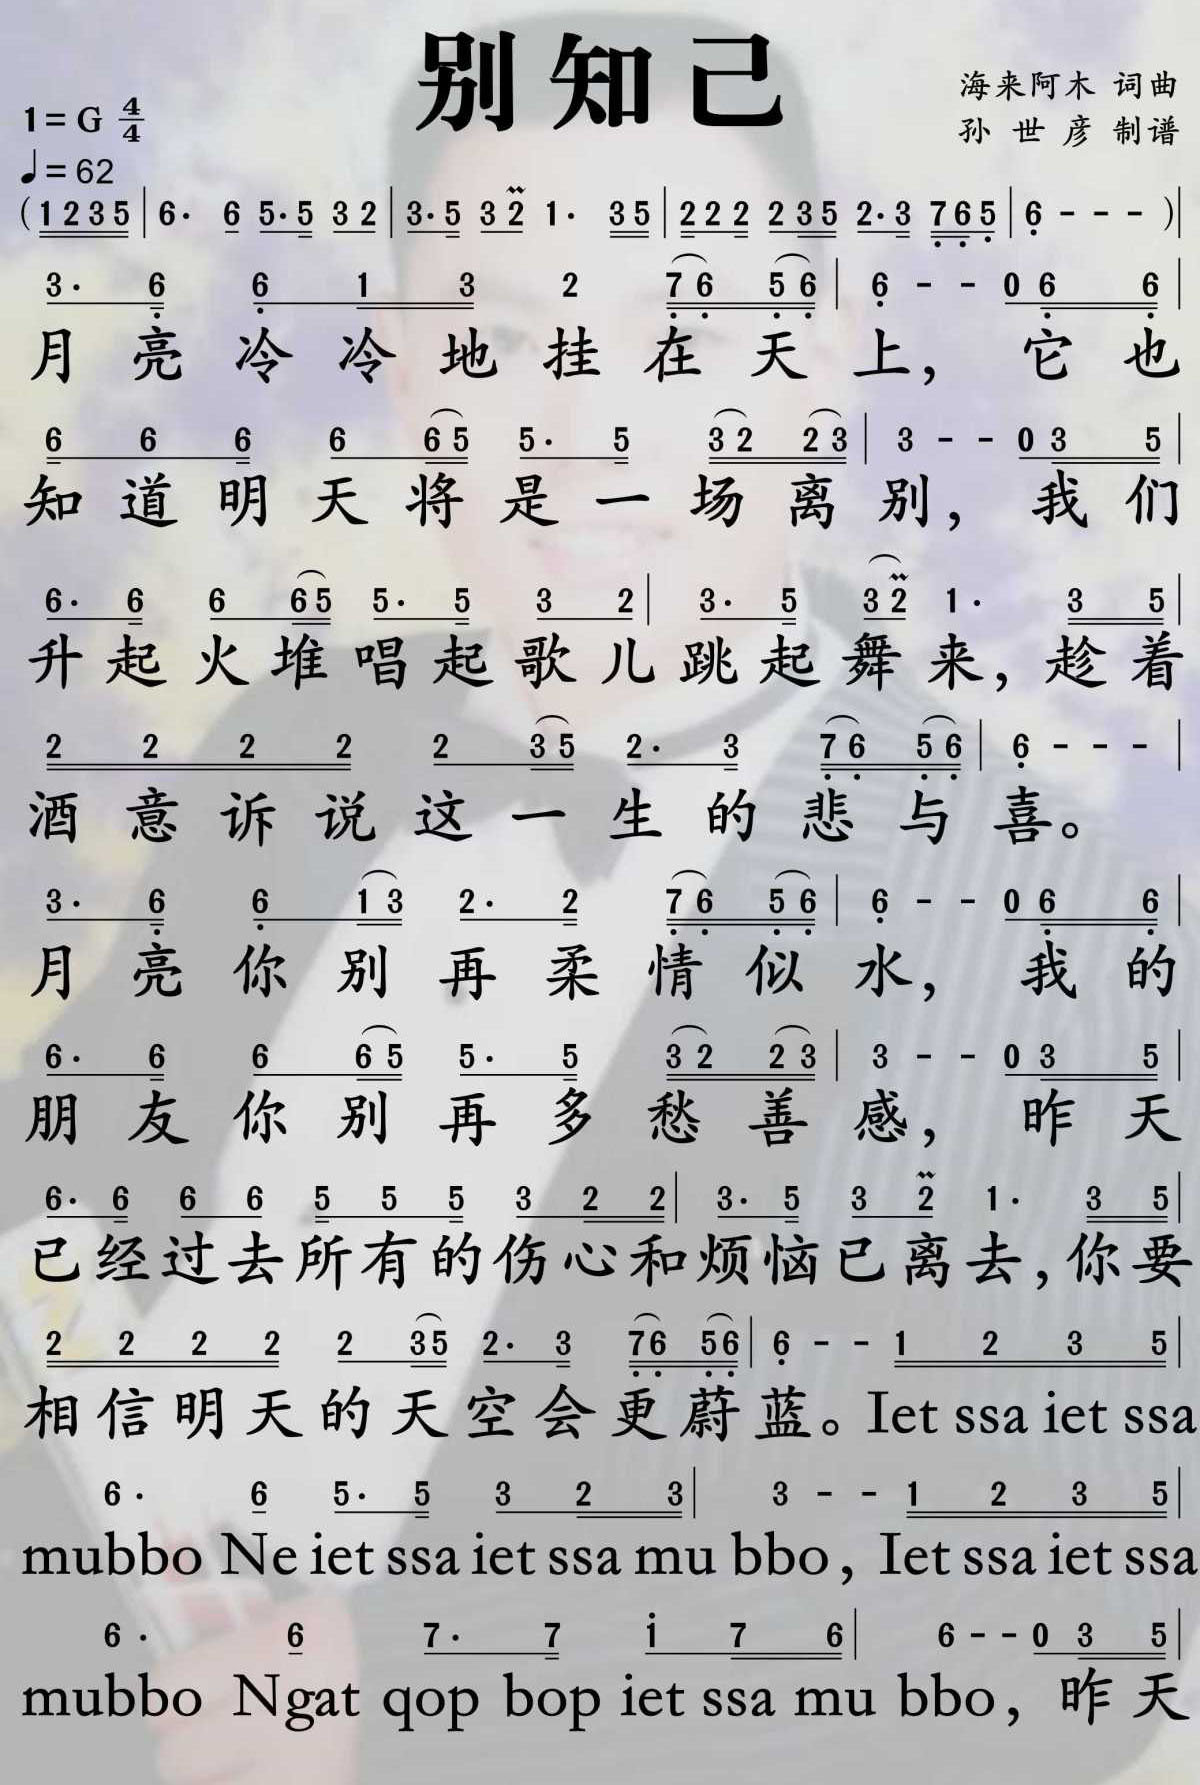 别知己
海来阿木 词曲
1=G 4/4
孙世彦 制谱
♩=62
(1235|6· 6 5·5 32|3·5 32 1· 35|222 235 2·3 765|6---)|
3· 6 6 1 3 2 76 56|6--0 6 6|
月亮冷冷地挂在天上，它也
6 6 6 6 65 5· 5 32 23|3--0 3 5|
知道明天将是一场离别，我们
6· 6 6 65 5· 5 3 2|3· 5 32 1· 3 5|
升起火堆唱起歌儿跳起舞来，趁着
2 2 2 2 2 35 2· 3 76 56|6---|
酒意诉说这一生的悲与喜。
3· 6 6 13 2· 2 76 56|6--0 6 6|
月亮你别再柔情似水，我的
6· 6 6 65 5· 5 32 23|3--0 3 5|
朋友你别再多愁善感，昨天
6· 6 6 6 5 5 5 3 2 2|3· 5 3 2 1· 3 5|
已经过去所有的伤心和烦恼已离去，你要
2 2 2 2 2 35 2· 3 76 56|6--1 2 3 5|
相信明天的天空会更蔚蓝。Iet ssa iet ssa
6· 6 5· 5 3 2 3|3--1 2 3 5|
mubbo Ne iet ssa iet ssa mu bbo，Iet ssa iet ssa
6· 6 7· 7 i 7 6|6--0 3 5|
mubbo Ngat qop bop iet ssa mu bbo，昨天